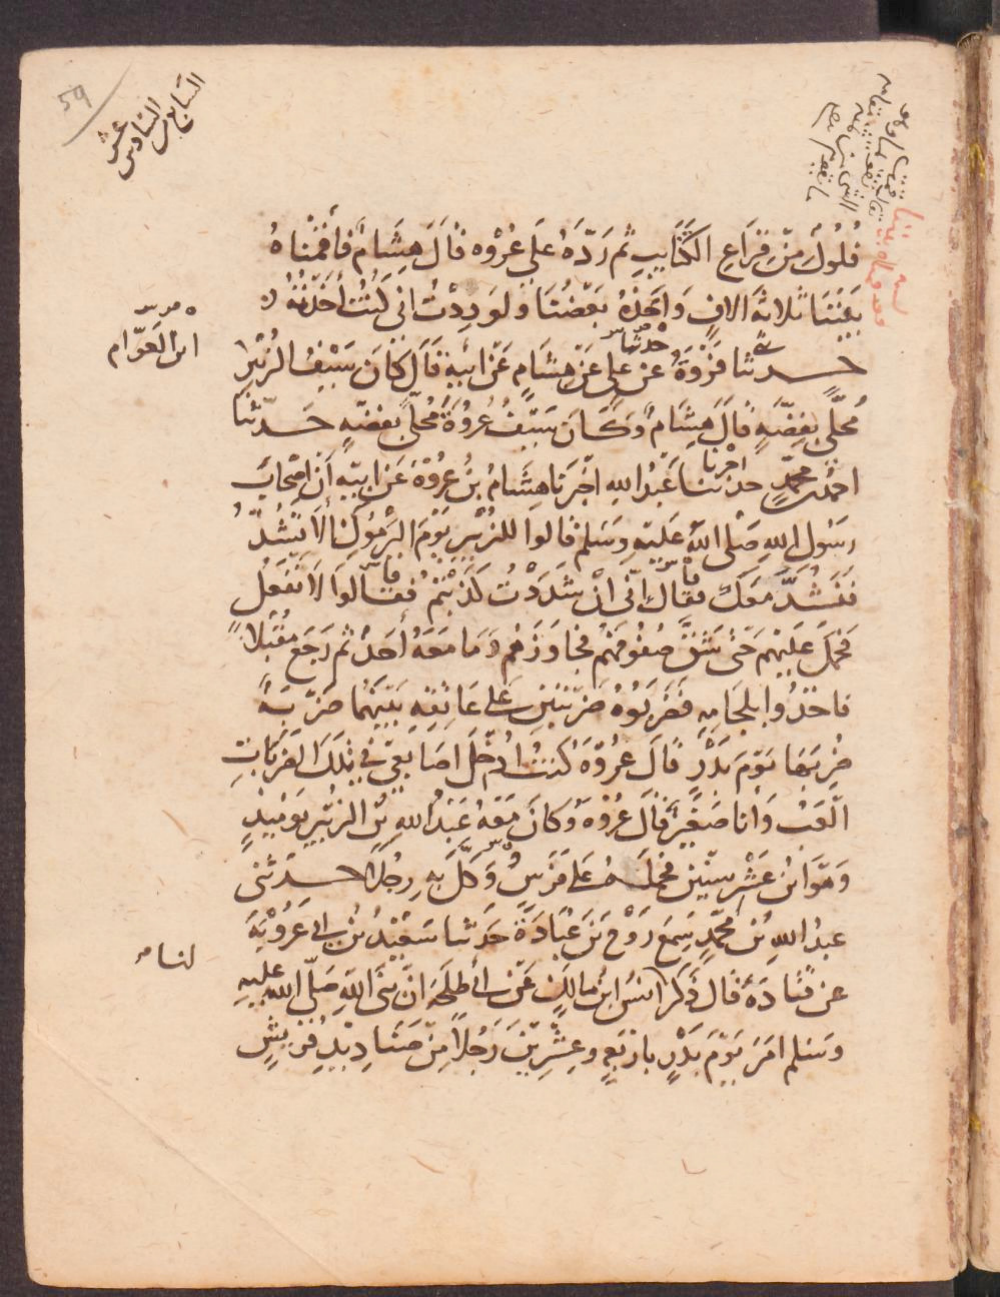 59
السابع
السادس عشر
فُلُولٌ مِنْ قِرَاعِ الكَتَايِبِ ثُم رَدَّهُ عَلَى عُرْوَه قَالَ هِشَامٌ فَأقمْنَاهُ
بَيْنَنَا ثَلاثةَ الافٍ وَاخَذَهُ بَعْضُنَا وَلَوَدِدْتُ انى كُنْتُ أَخَذْتُهُ
حـدثنا فَرْوَةُ عن على عَنْ هِشَامٍ عَنْ ابيهِ قَالَ كَانَ سَيْفُ الزُّبَيْرِ
حدثنا
ابن العَوّام
مُحَلًّى بِفِضَّهٍ قَالَ هِشَامٌ وَكَانَ سَيْفُ عُرْوَةَ مُحَلًّى بفضهٍ حَـدثنا
احمَدُ بن محمدٍ حدثنا عَبْدُ اللهِ اخْبَرَنَا هِشَامُ بنُ عُرْوَةَ عَنْ ابيْهِ أَنَّ اصْحَابَ
اخبرنا
رَسُولِ اللهِ صَلى اللهُ عَليْهِ وَسَلم قالوا للزُبَيْرِ يَوْمَ اليَرْمُوكِ الَا تَشُدُّ
فَنَشُدَّ مَعَكَ فقَال انّى انْ شَدَدْتُ كَذَبْتُمْ فقَالُوا لَا نَفْعَلُ
فحَمَلَ عَلَيْهِم حَتى شَقَّ صُفُوفَهُم فجَاوَزَهُم وَمَا مَعَهُ أَحَدٌ ثم رَجَعَ مُقْبِلًا
فاخَذُوا بِلِجَامِهِ فَضَرَبُوهُ ضَرْبَتَيْنِ عَلى عَاتِقِهِ بَيْنَهُمَا ضَرْبَةٌ
ضُرِبَهَا يَوْمَ بَدْرٍ قَالَ عُرْوَةُ كُنْتُ ادْخِلُ اصَابِعِى فى تِلْكَ الضَرَبَاتِ
الْعَبُ وَانا صَغيرٌ قَالَ عُرْوَهُ وَكَانَ مَعَهُ عَبْدُ اللهِ بْنُ الزُبَيْرِ يَوْمَيِذٍ
وَهْوَ ابْنُ عَشْرِ سِنْينَ فَحَمَلَهُ عَلى فَرَسٍ وَكَّلَ بِهِ رجُلًا حـدثنى
عبدُ اللهِ بْنُ مُحَمَّدٍ سَمِعَ رَوْحَ بْنَ عُبَادَةَ حَدثنا سَعِيْدُ بْنُ ابى عَرُوْبَةَ
لنا
عن قَتَادَةَ قال ذَكَرَ انَسُ ابنُ مَالِكٍ عَنْ ابى طَلحَةَ انَّ نَبِىَّ اللهِ صَلَّى اللهُ عليهِ
وسَلم امَرَ يَوْمَ بَدْرٍ باربَعَةٍ وعِشْرِيْنَ رَجُلًا مِنْ صَنَادِيْدِ قُرَيْشٍ